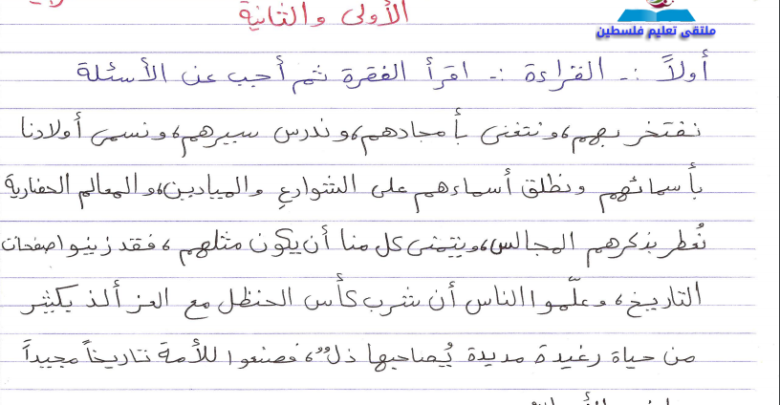 الأولى والثانية
ملتقى تعليم فلسطين
أولاً :- القراءة :- اقرأ الفقرة ثم أجب عن الأسئلة
نفتخر بهم، ونتغنى بأمجادهم، وندرس سيرهم، ونسمى أولادنا
بأسمائهم ونطلق أسماءهم على الشوارع والميادين، والمعالم الحضارية
نُعطر بذكرهم المجالس، ويتمنى كل منا أن يكون مثلهم، فقد زينوا صفحات
التاريخ، وعلّموا الناس أن شرب كأس الحنظل مع العز ألذ بكثير
من حياة رغيدة مديدة يُصاحبها ذلٌ، فصنعوا للأمة تاريخاً مجيداً